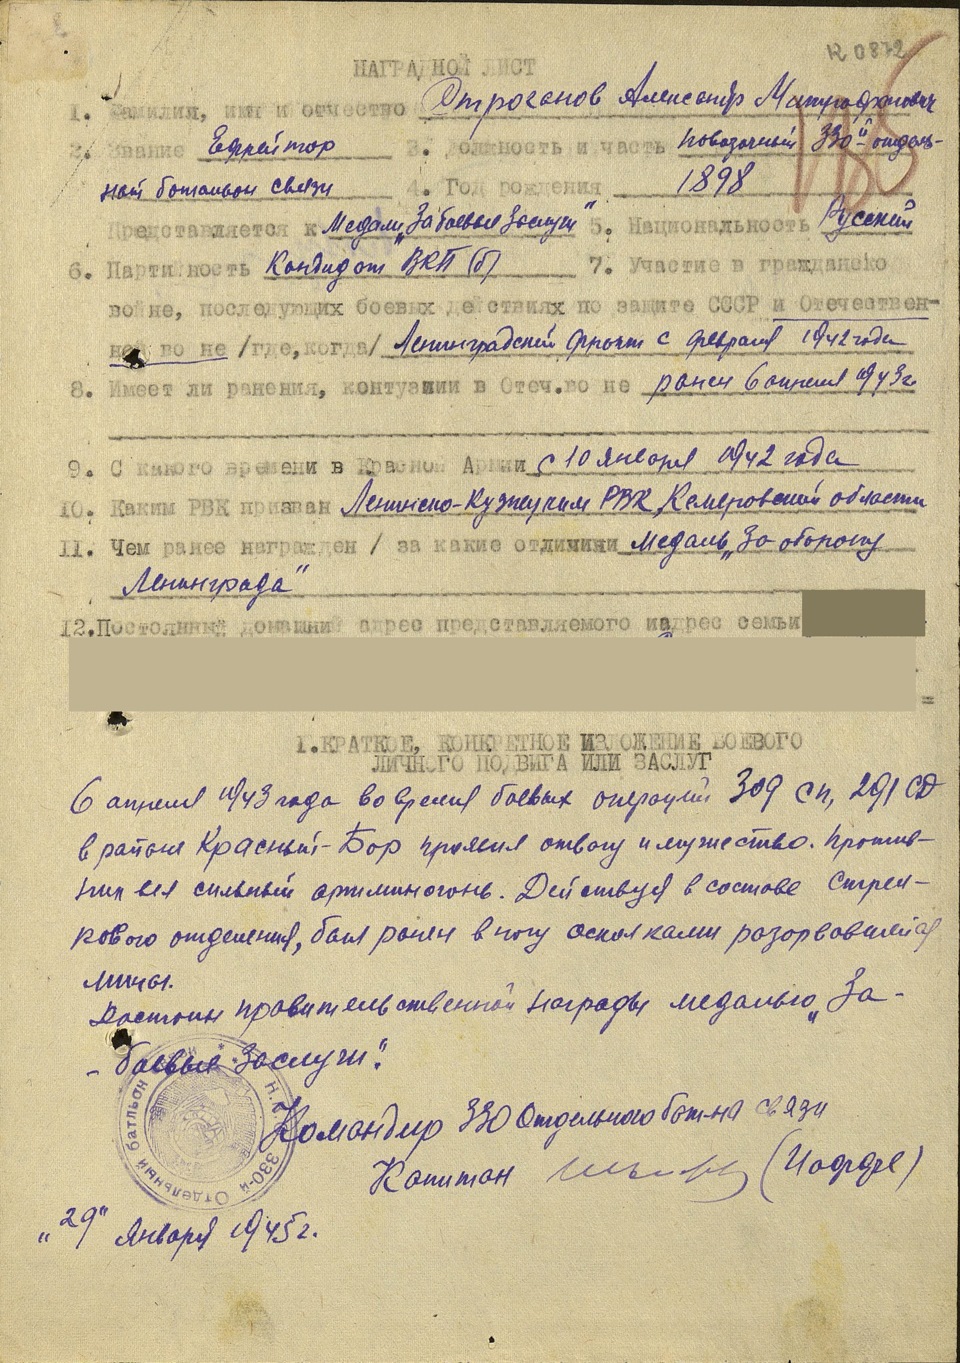 НАГРАДНОЙ ЛИСТ
1. Фамилия, имя и отчество Строганов Александр Митрофанович
2. Звание Ефрейтор 3. Должность и часть повозочный 330й отдель-
ный батальон связи 4. Год рождения 1898
Представляется к Медали „За боевые Заслуги“ 5. Национальность Русский
6. Партийность Кандидат ВКП(б) 7. Участие в гражданско
войне, последующих боевых действиях по защите СССР и Отечествен-
ной во не /где,когда/ Ленинградский фронт с февраля 1942 года
8. Имеет ли ранения, контузии в Отеч.во не ранен 6 апреля 1943г.
9. С какого времени в Красной Армии с 10 января 1942 года
10. Каким РВК призван Ленинско-Кузнецким РВК, Кемеровской области
11. Чем ранее награжден / за какие отличии медаль „За оборону
Ленинграда“
12.Постоянный домашний адрес представляемого и адрес семьи
I.КРАТКОЕ, КОНКРЕТНОЕ ИЗЛОЖЕНИЕ БОЕВОГО
ЛИЧНОГО ПОДВИГА ИЛИ ЗАСЛУГ
6 апреля 1943 года во время боевых операций 309 СП, 291 СД
в районе Красный-Бор проявил отвагу и мужество. Против-
ник вел сильный артминогонь. Действуя в составе стрел-
кового отделения, был ранен в ногу осколками разорвавшейся
мины.
Достоин правительственной награды медалью „За-
- боевые Заслуги“.
Командир 330 Отдельного бат-на связи
Капитан (Иоффе)
„29“ января 1945г.
330-й Отдельный батльон связи
№ 0872